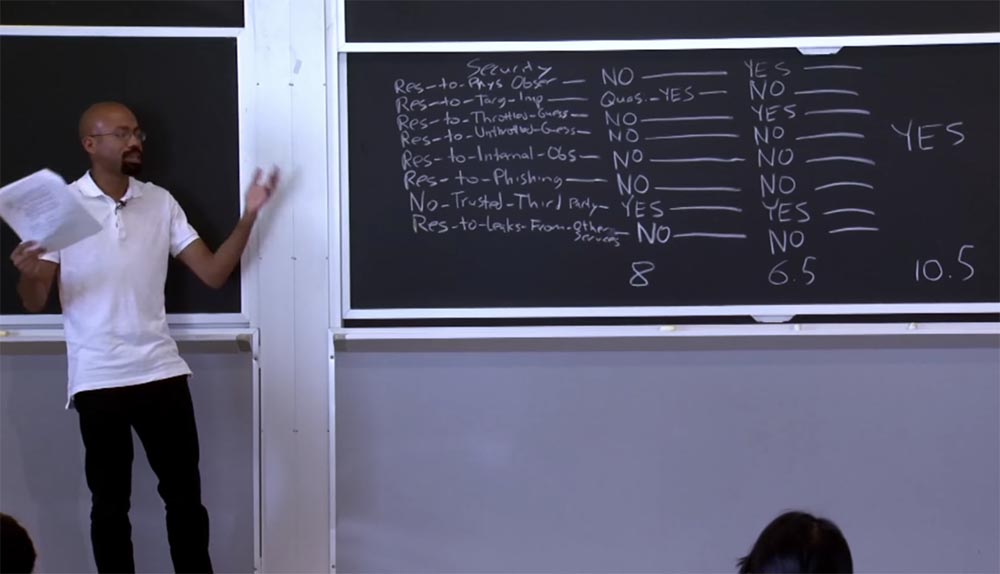 Security
Res-to-Phys Obser — NO — YES —
Res-to-Targ-Imp — Quas.-YES — NO —
Res-to-Throttled-Guess — NO — YES —
Res-to-Unthrottled-Guess — NO — NO — YES
Res-to-Internal-Obs — NO — NO —
Res-to-Phishing — NO — NO —
No-Trusted-Third Party — YES — YES —
Res-to-Leaks-From-Other Services — NO — NO
8 6.5 10.5